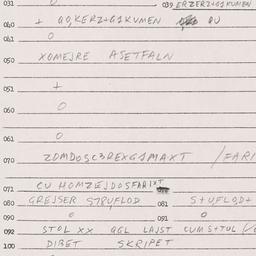 031 0 039 ERZERZ+G1KUMEN
040 + GO,KERZ+G1KUMEN QU
041 0
050 XOMEJRE ASETFALN
051 +
060 0
061 0
070 ZOMDOSC3REXG1MAXT /FARI
071 CU HOMZEJDOSFARIXT
080 GREJSER S7RUFLOD 081 S+UFLOD+
090 0 091 0
092 STOL XX GGL LAJST CUMS+TUL
100 DIBET SKRIPET